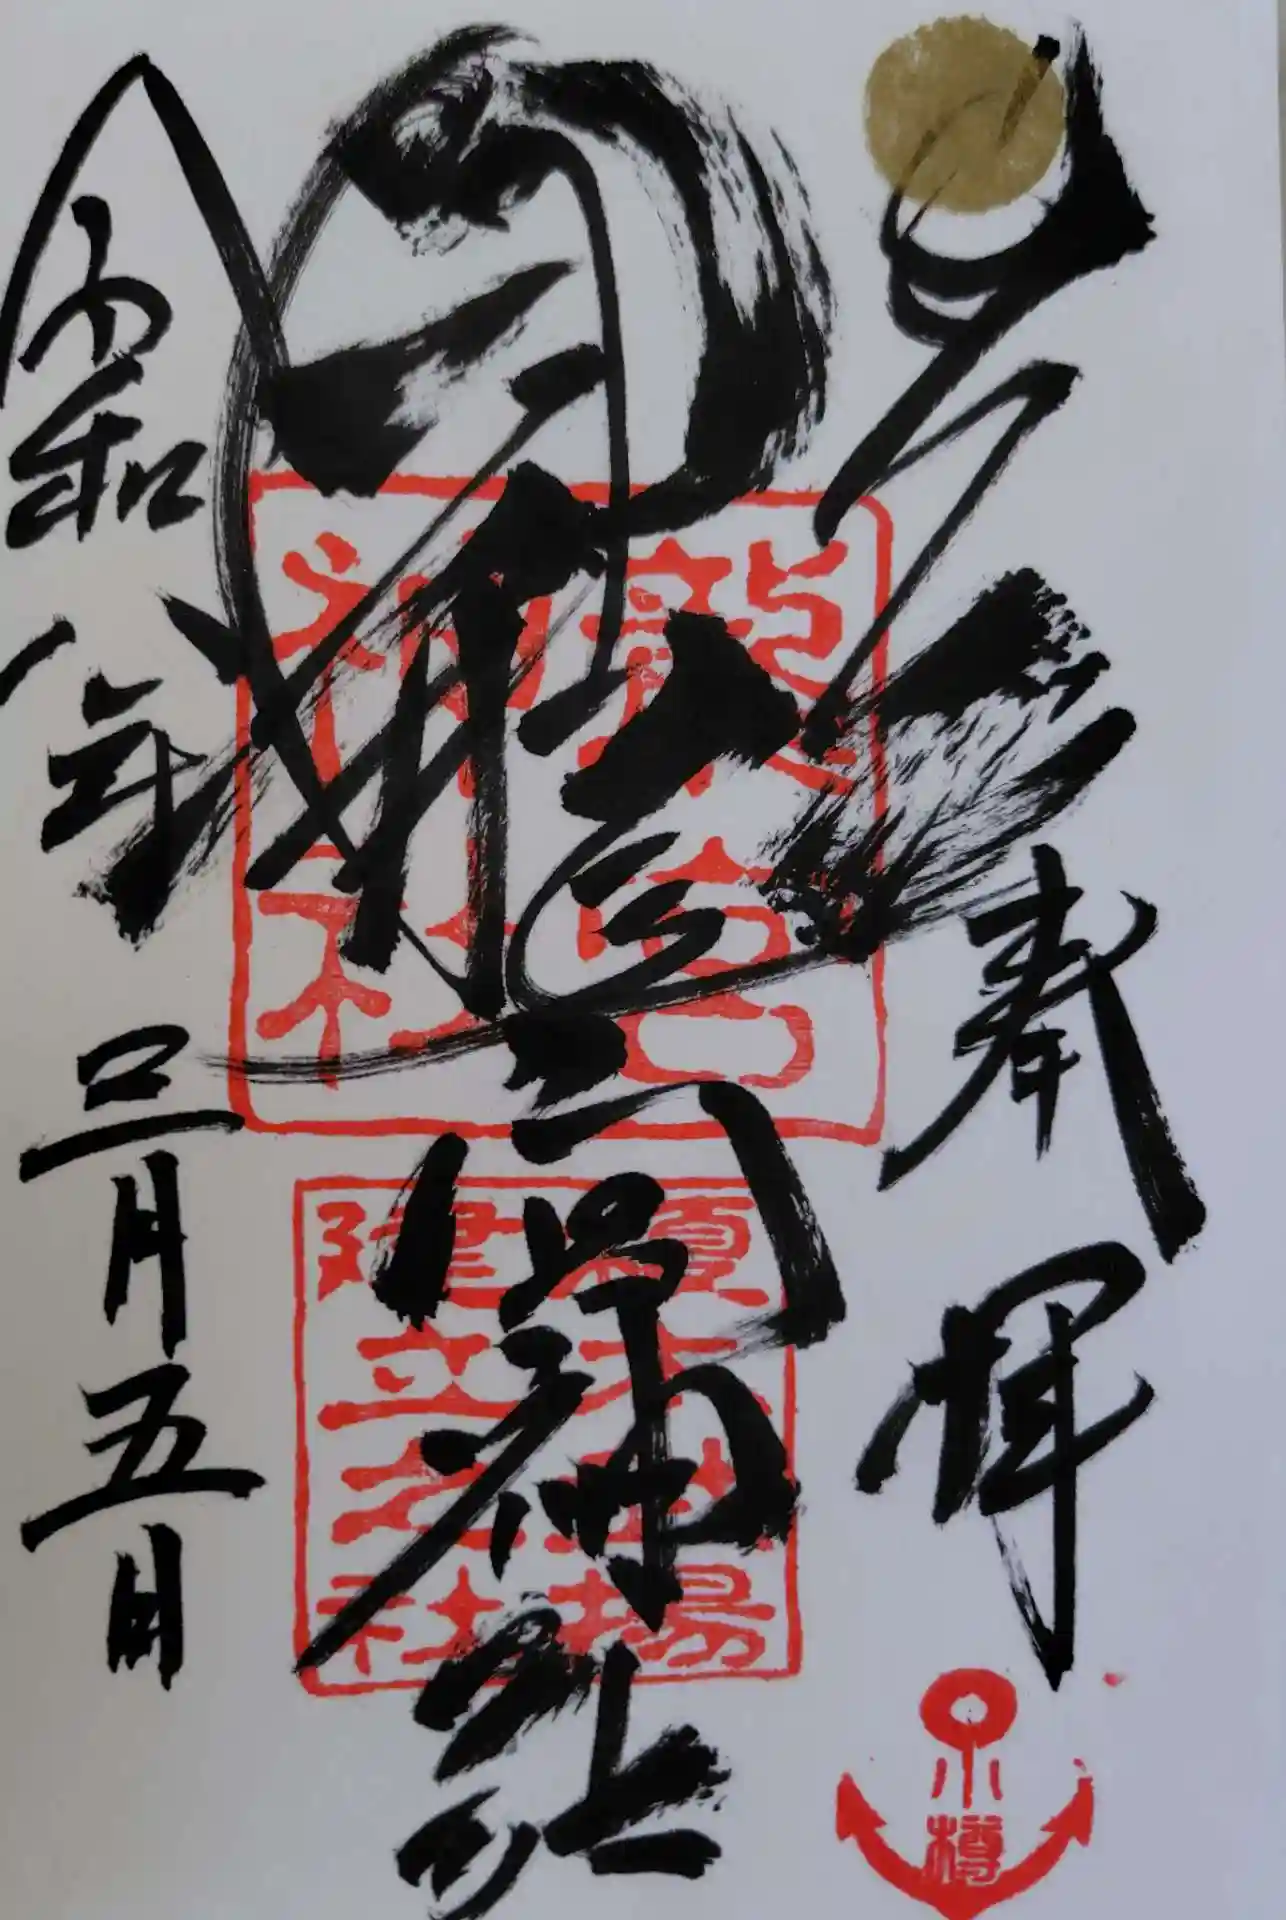 奉拝
龍宮神社
令和八年三月五日
龍宮
神社
榎本武揚
建立之社
小樽